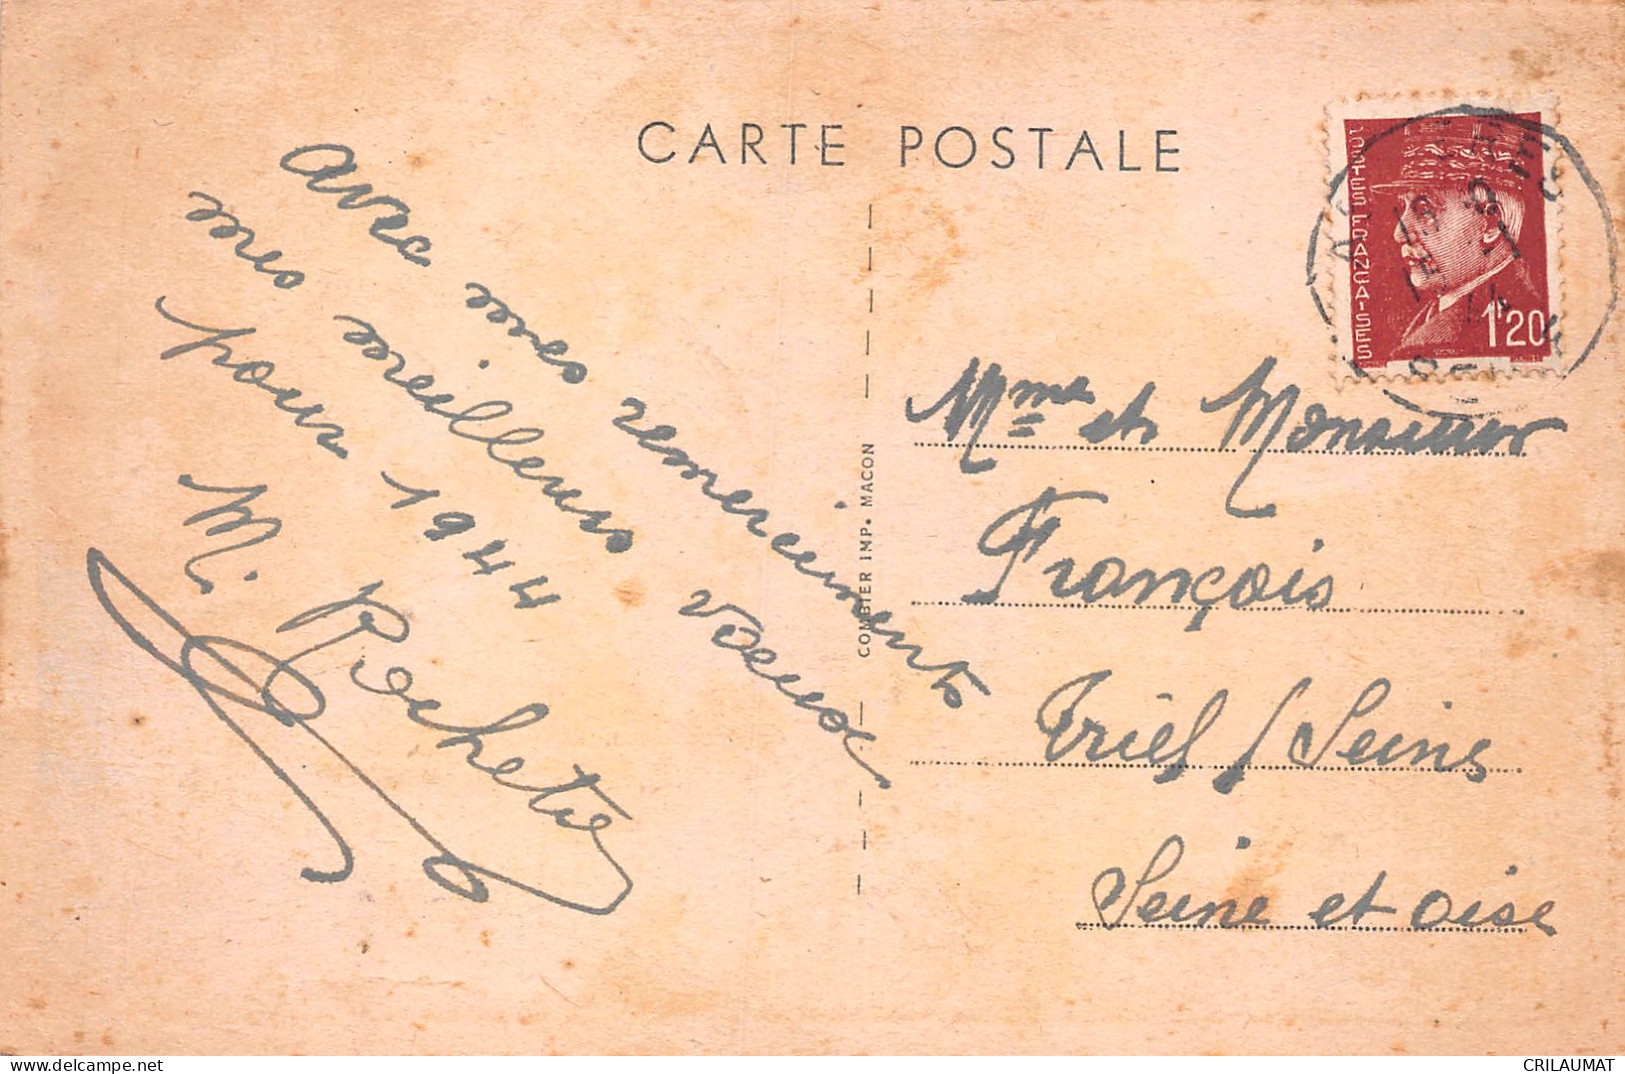 CARTE POSTALE
avec mes remerciements
mes meilleurs voeux
pour 1944
M. Rochette
COMBIER IMP. MACON
POSTES FRANÇAISES
1F20
Mme et Monsieur
François
Triel / Seine
Seine et Oise
CRILAUMAT